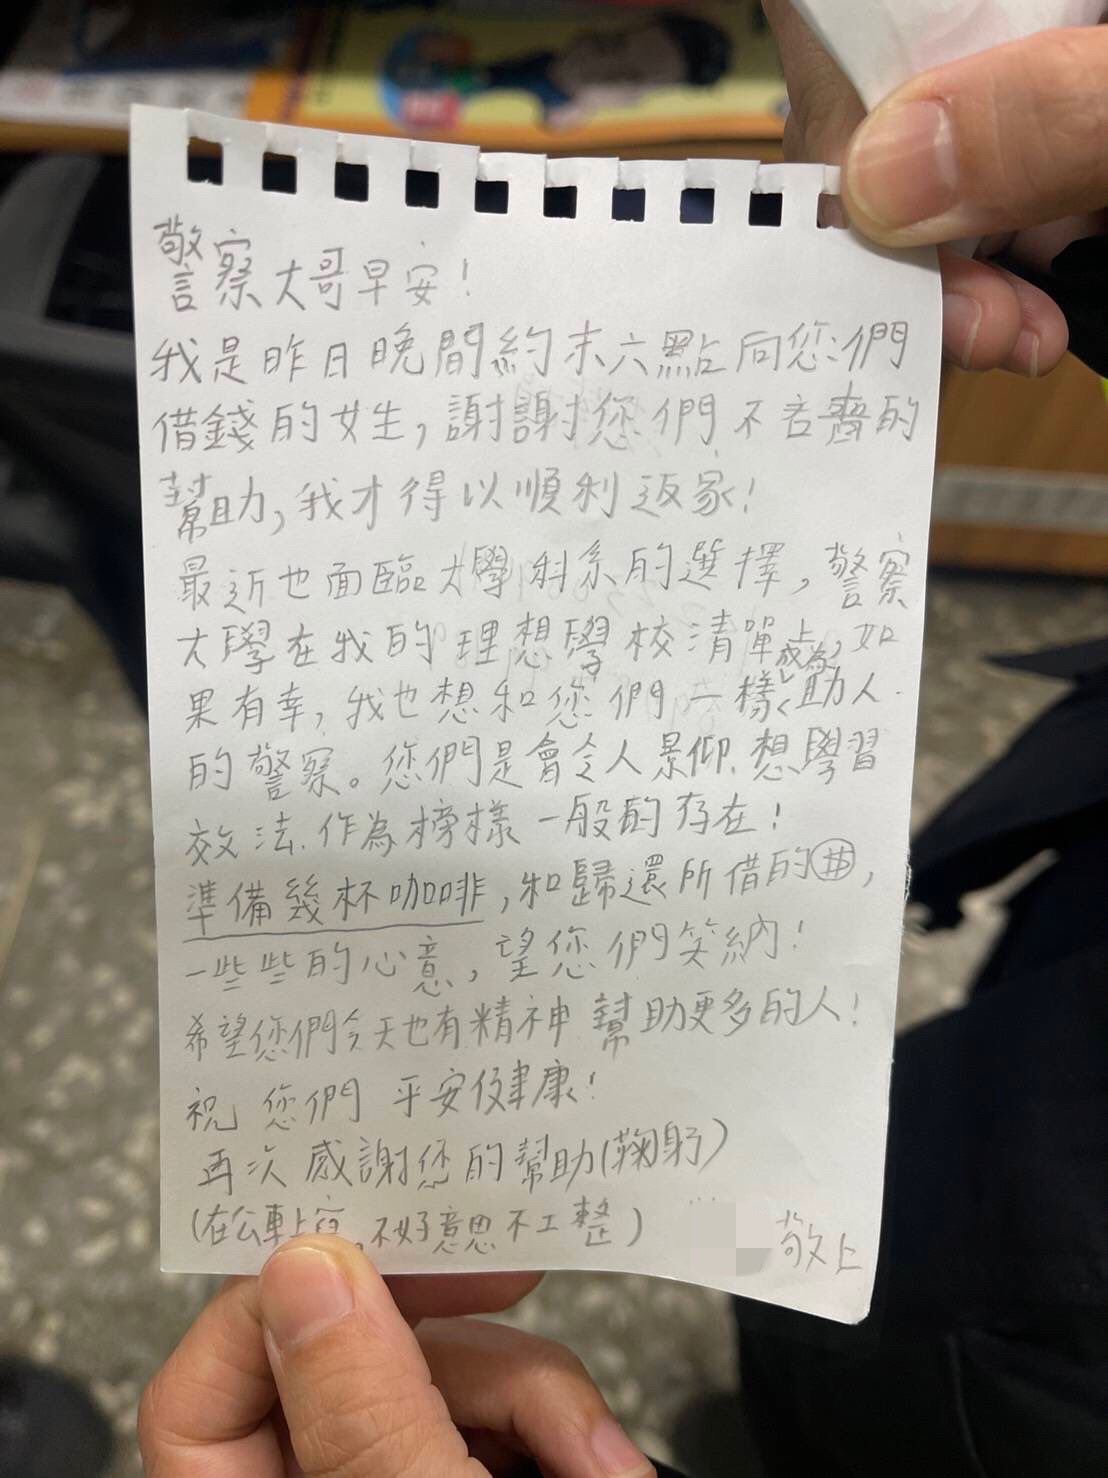 警察大哥早安!
我是昨日晚間約末六點向您們
借錢的女生,謝謝您們不吝嗇的
幫助,我才得以順利返家!
最近也面臨大學科系的選擇,警察
大學在我的理想學校清單上,如
果有幸,我也想和您們一樣成為助人
的警察。您們是會令人景仰、想學習
效法、作為榜樣一般的存在!
準備幾杯咖啡,和歸還所借的,
一些些的心意,望您們笑納!
希望您們今天也有精神幫助更多的人!
祝 您們 平安健康!
再次感謝您的幫助(鞠躬)
(在公車上寫,不好意思不工整) 敬上